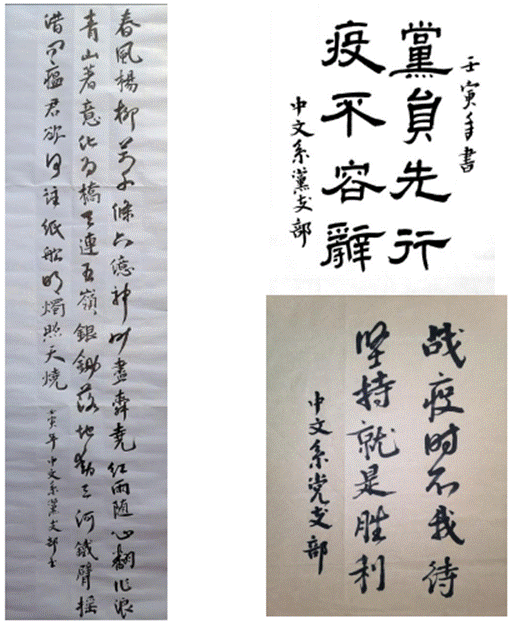 春風楊柳万千條六億神州盡舜堯紅雨随心翻作浪
青山著意化为橋天連五嶺銀鋤落地動三河鐵臂摇
借问瘟君欲何往紙船明燭照天燒
壬寅年中文系黨支部书
壬寅年書
黨員先行
疫不容辭
中文系黨支部
战疫时不我待
坚持就是胜利
中文系党支部